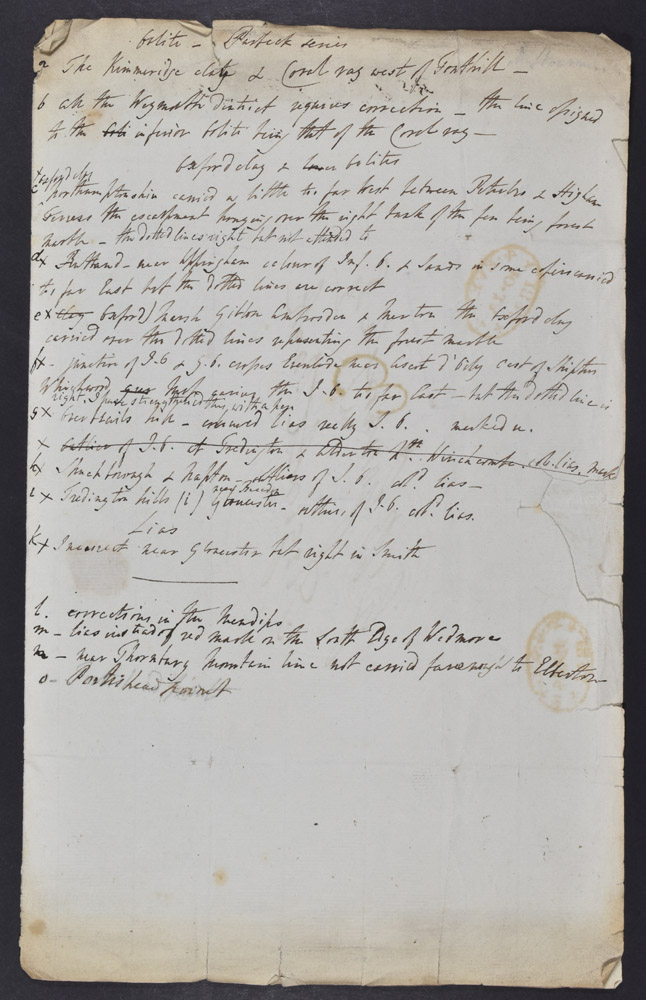 Oolite - Purbeck series
a The Kimmeridge clay & Coral rag west of Fonthill -
b all the Weymouth District requires correction - the line assigned
to the inferior Oolite being that of the Coral rag -
Oxford clay & lower Oolites
Oxford clay
c Northamptonshire carried a little too far West between Peterbro & Higham
Ferrers the escarpment hanging over the right bank of the fen being forest
marble - the dotted lines right but not attended to
d x Rutland - near Uppingham colour of Inf. O. & Sands in some copies carried
too far East but the dotted lines are correct
e x clay Oxford) Marsh Gibbon Ambrosden & Merton the Oxford clay
carried over the dotted lines representing the forest marble
f x - junction of I.O & G.O. crosses Evenlode near Ascot d'Oily east of Shipton
Whichwood carrying the I.O. too far East - but the dotted line is
right, I have strengthened this with a pen
g x hill - coloured lias really I. O. . marked u.
x outlier of I.O. at Tredington & Alderton Winchcombe, col. lias. mark
h x Shuckborough & Napton - outliers of I. O. cold. lias -
near
i x Tredington hills (i) Gloucester - outliers of I.O. cold. lias.
Lias
k x Incorrect near Gloucester but right in Smith
l. corrections in the Mendips
m - lias instead of red marle on the South Edge of Wedmore
n - near Thornbury Mountain lime not carried far enough to Elberton
o - Portishead point